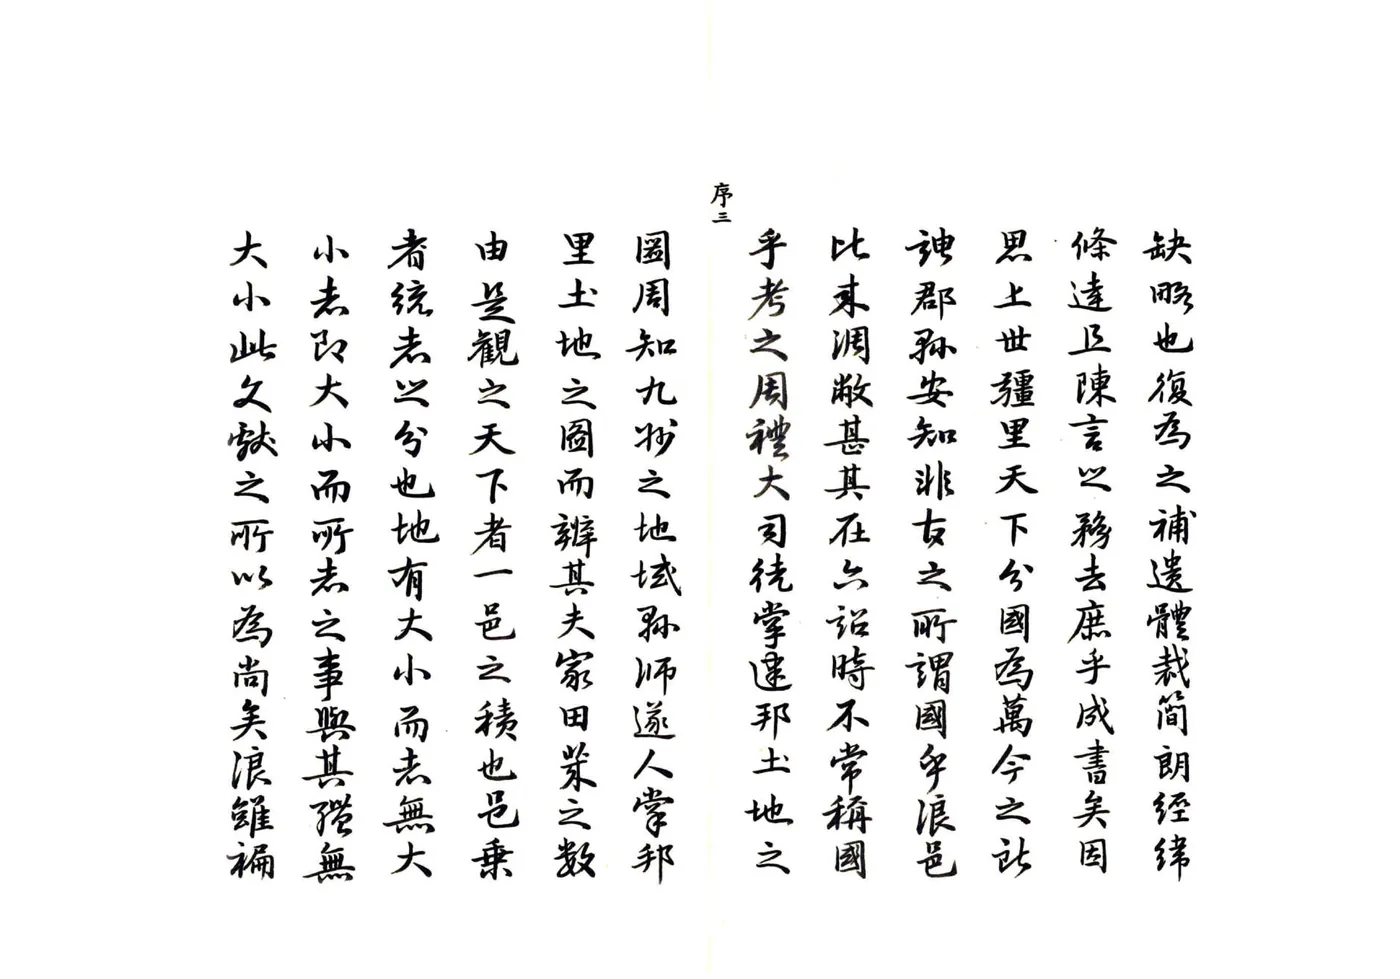 缺略也復為之補遺體裁簡朗經緯
條達且陳言之務去庶乎成書矣因
思上世疆里天下分國為萬今之所
謂郡縣安知非古之所謂國乎浪邑
比來凋敝甚其在六詔時不常稱國
乎考之周禮大司徒掌建邦土地之
序三
圖周知九州之地域縣師遂人掌邦
里土地之圖而辨其夫家田萊之數
由是觀之天下者一邑之積也邑乘
者統志之分也地有大小而志無大
小志即大小而所志之事與其無
大小此文獻之所以為尚矣浪雖褊